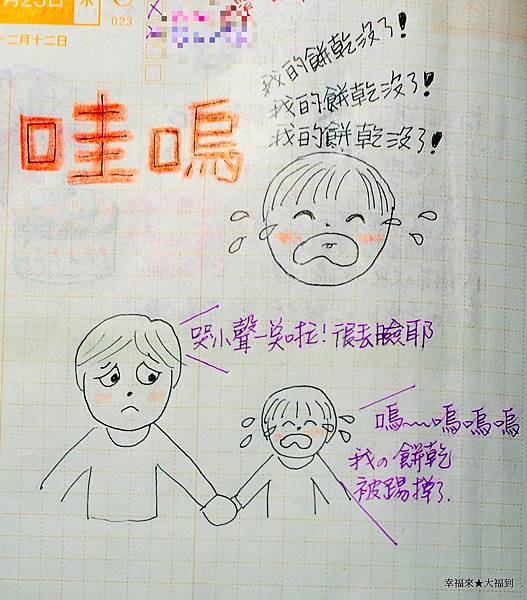 月25日 水
023
十二月十二日
我的餅乾沒了!
我的餅乾沒了!
我的餅乾沒了!
哇嗚
哭小聲一點啦!很丟臉耶
嗚~嗚嗚嗚
我の餅乾
被踢掉了.
幸福來★大福到